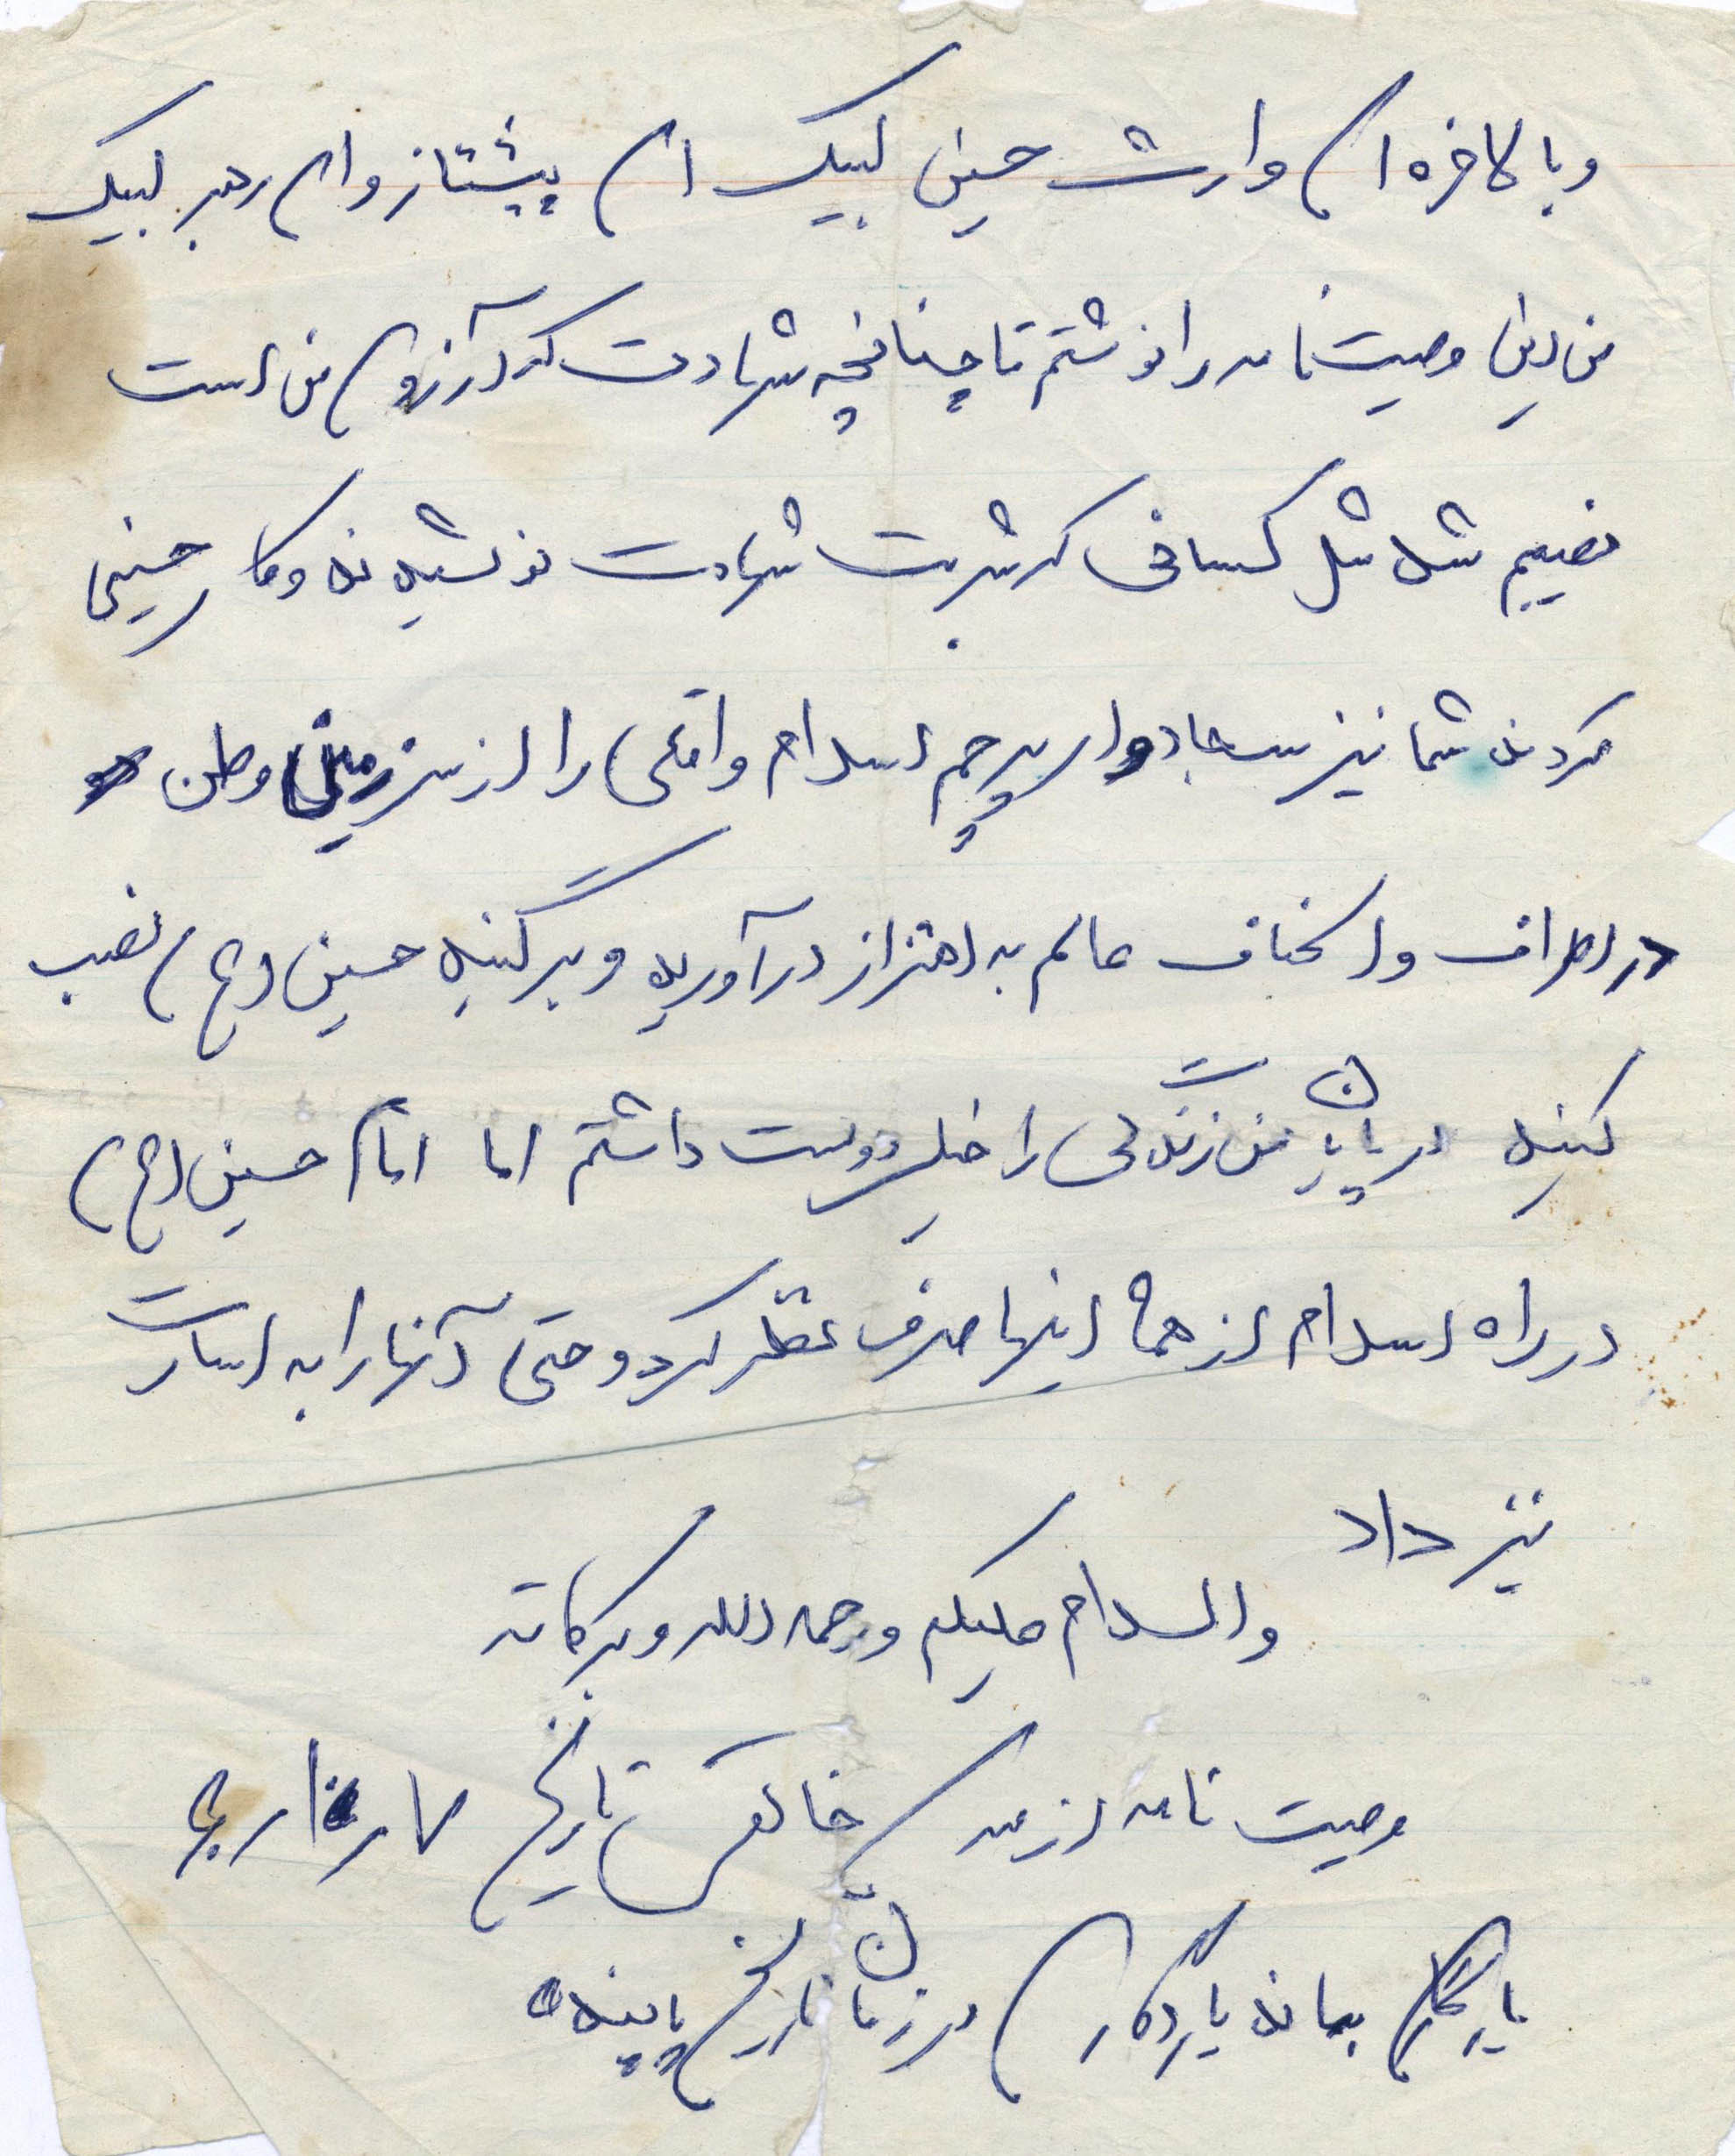 و بالاخره ای وارث حسین لبیک ای پیشتاز و ای رهبر لبیک
من این وصیت نامه را نوشتم تا چنانچه شهادت که آرزوی من است
نصیبم شد مثل کسانی که شربت شهادت نوشیدند و کار حسینی
کردند شما نیز سجادوار پرچم اسلام واقعی را از سرزمین وطن
در اطراف و اکناف عالم به اهتزاز درآورید و بر گنبد حسین (ع) نصب
کنید در پایان من زندگی را خیلی دوست داشتم اما امام حسین (ع)
در راه اسلام از همه اینها صرف نظر کرد و حتی آنها را به اسارت
نیز داد
والسلام علیکم و رحمه الله و برکاته
وصیت نامه از تاریخ
بماند یادگاری در زمان تاریخ پاینده